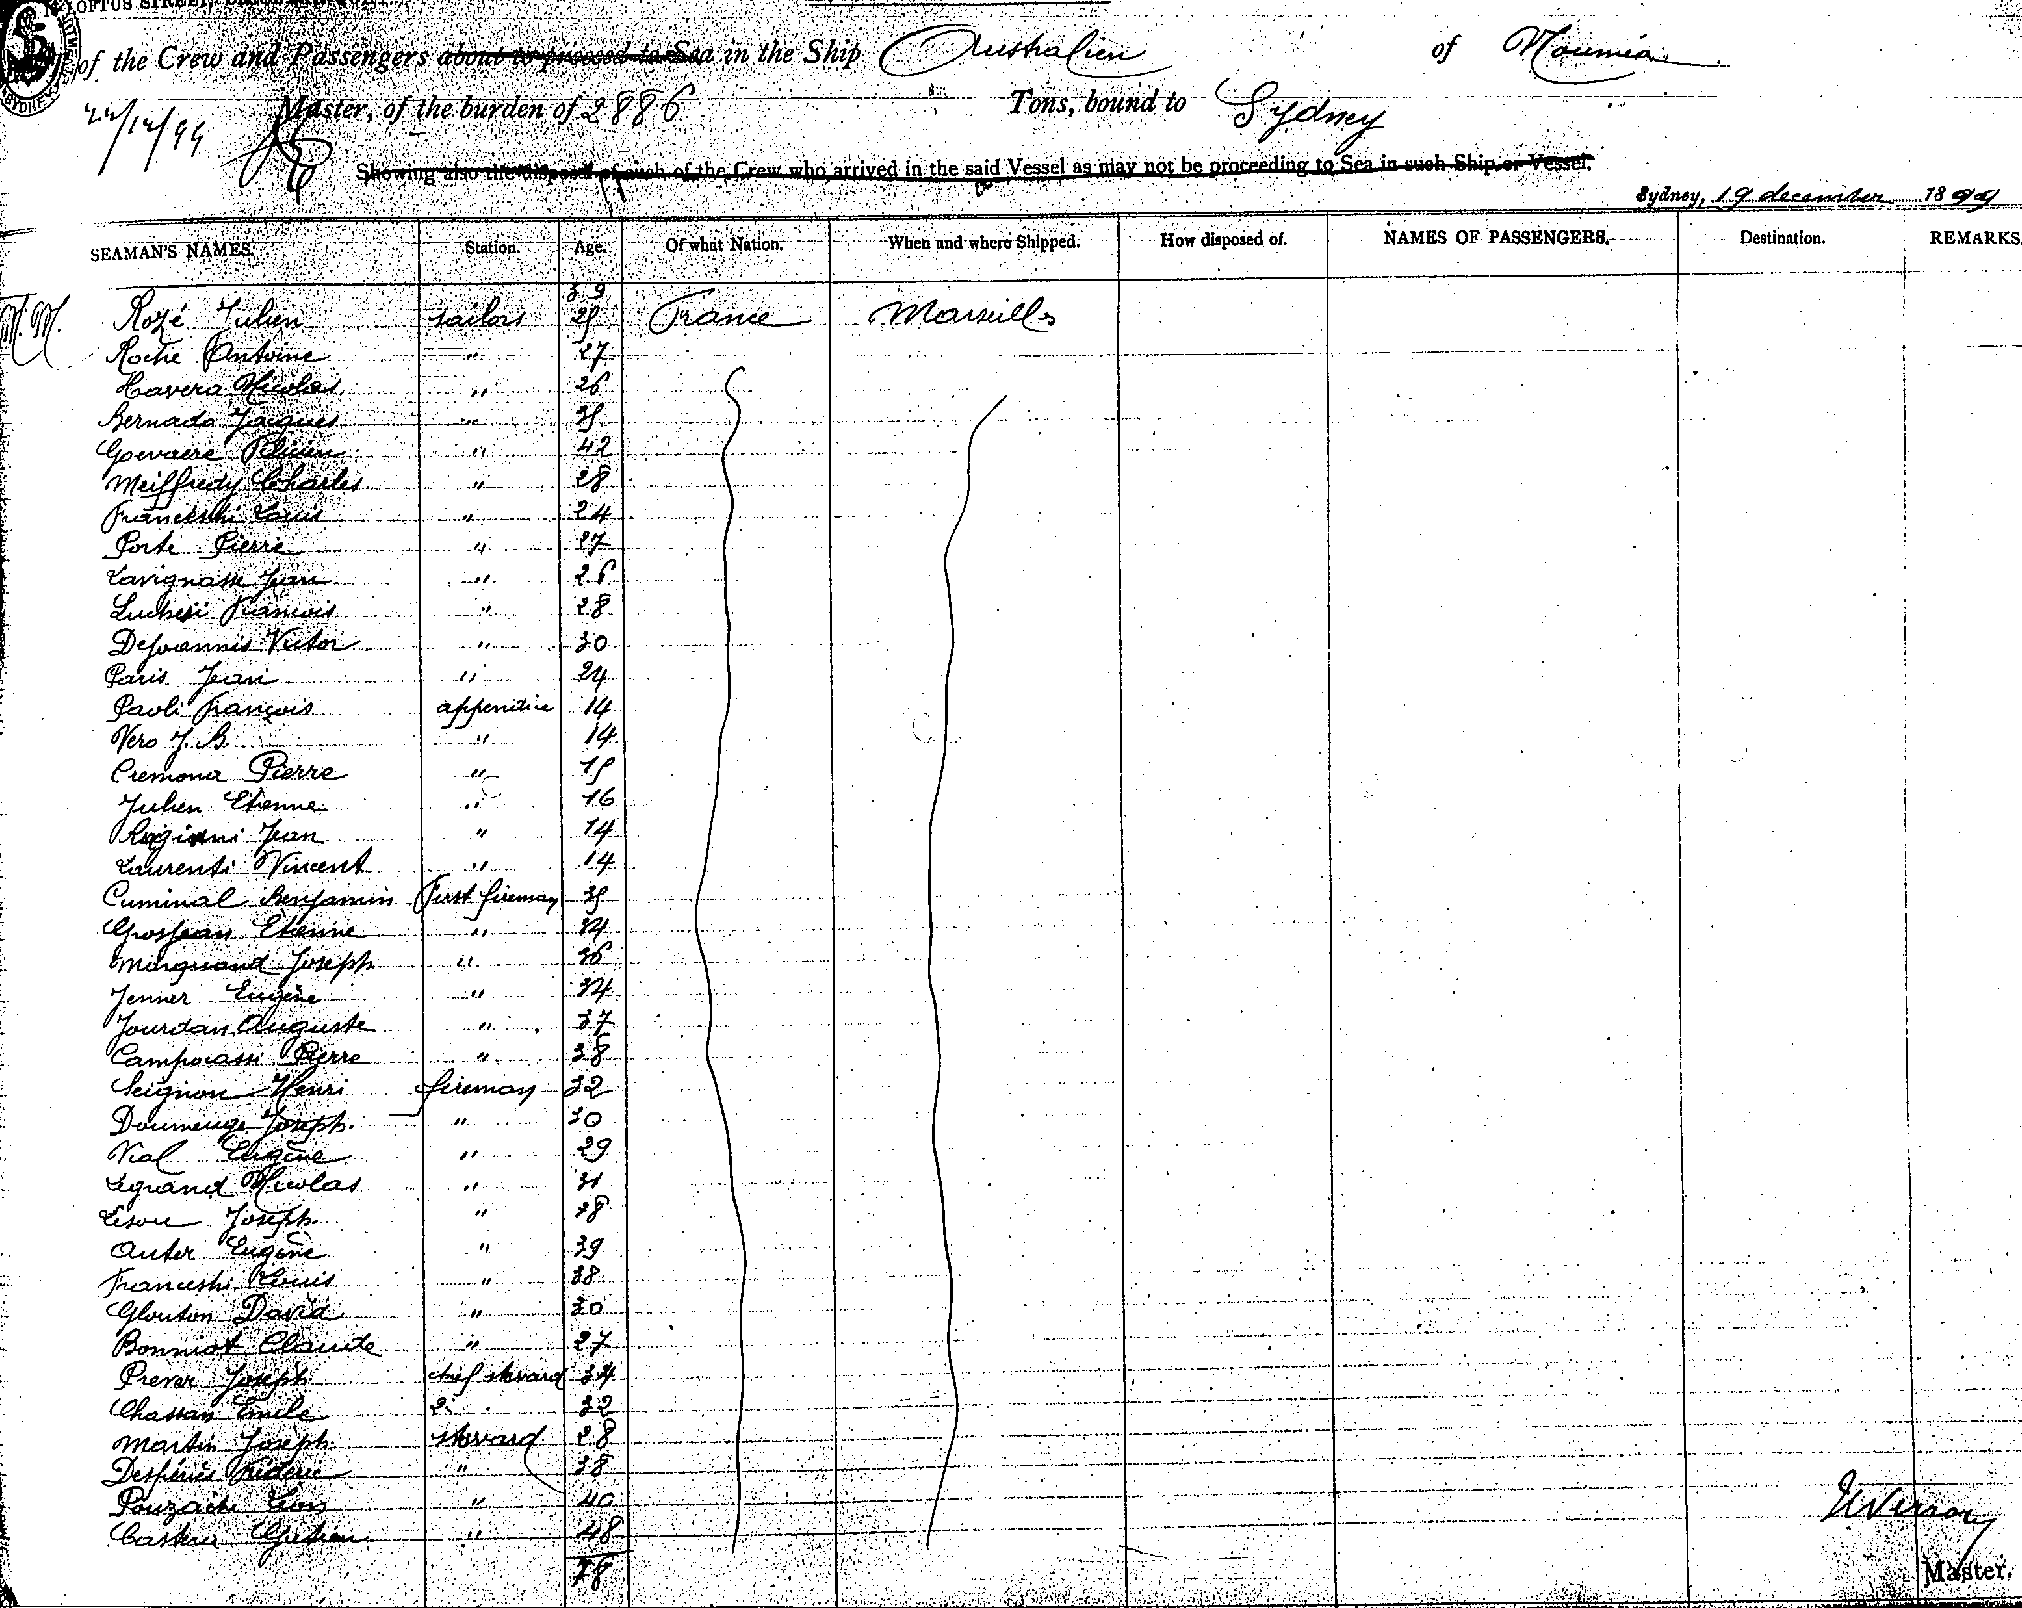 LOFTUS STREET
SYDNEY
of the Crew and Passengers about to proceed to Sea in the Ship Australien of Nouméa
22/12/99 Master, of the burden of 2886 Tons, bound to Sydney
Showing also the disposal of such of the Crew who arrived in the said Vessel as may not be proceeding to Sea in such Ship or Vessel.
Sydney, 19 december 1899
SEAMAN'S NAMES. Station. Age. Of what Nation. When and where Shipped. How disposed of. NAMES OF PASSENGERS. Destination. REMARKS
39
M. M. Rozé Julien sailors 25 France Marseilles
Roche Antoine " 27
Havera Nicolas " 26
Bernado Jacques " 35
Goevaere " 42
Meiffredy Charles " 28
Franceschi Louis " 24
Porte Pierre " 27
Lavignasse Jean " 26
Luchesi Francois " 28
DeJoannis Victor " 30
Paris Jean " 24
Paoli François appendice 14
Vero J. B. " 14
Cremona Pierre " 15
Julien Etienne " 16
Jean " 14
Laurenti Vincent " 14
Cuminal Benjamin First fireman 35
Grosjean Etienne " 24
Marquand Joseph " 36
Jenner Eugène " 34
Jourdan Auguste " 37
Campocassi Pierre " 38
Seignon Henri fireman 32
Doumenge Joseph " 30
Vial Eugène " 29
Legrand Nicolas " 31
Joseph " 28
Auter Eugène " 39
Franceshi Louis " 38
Glouton David " 30
Bonniot Claude " 27
Prever Joseph chief stevard 34
Chassan Emile 2 32
Martin Joseph stevard 28
" 38
" 40
" 48
78
Master.